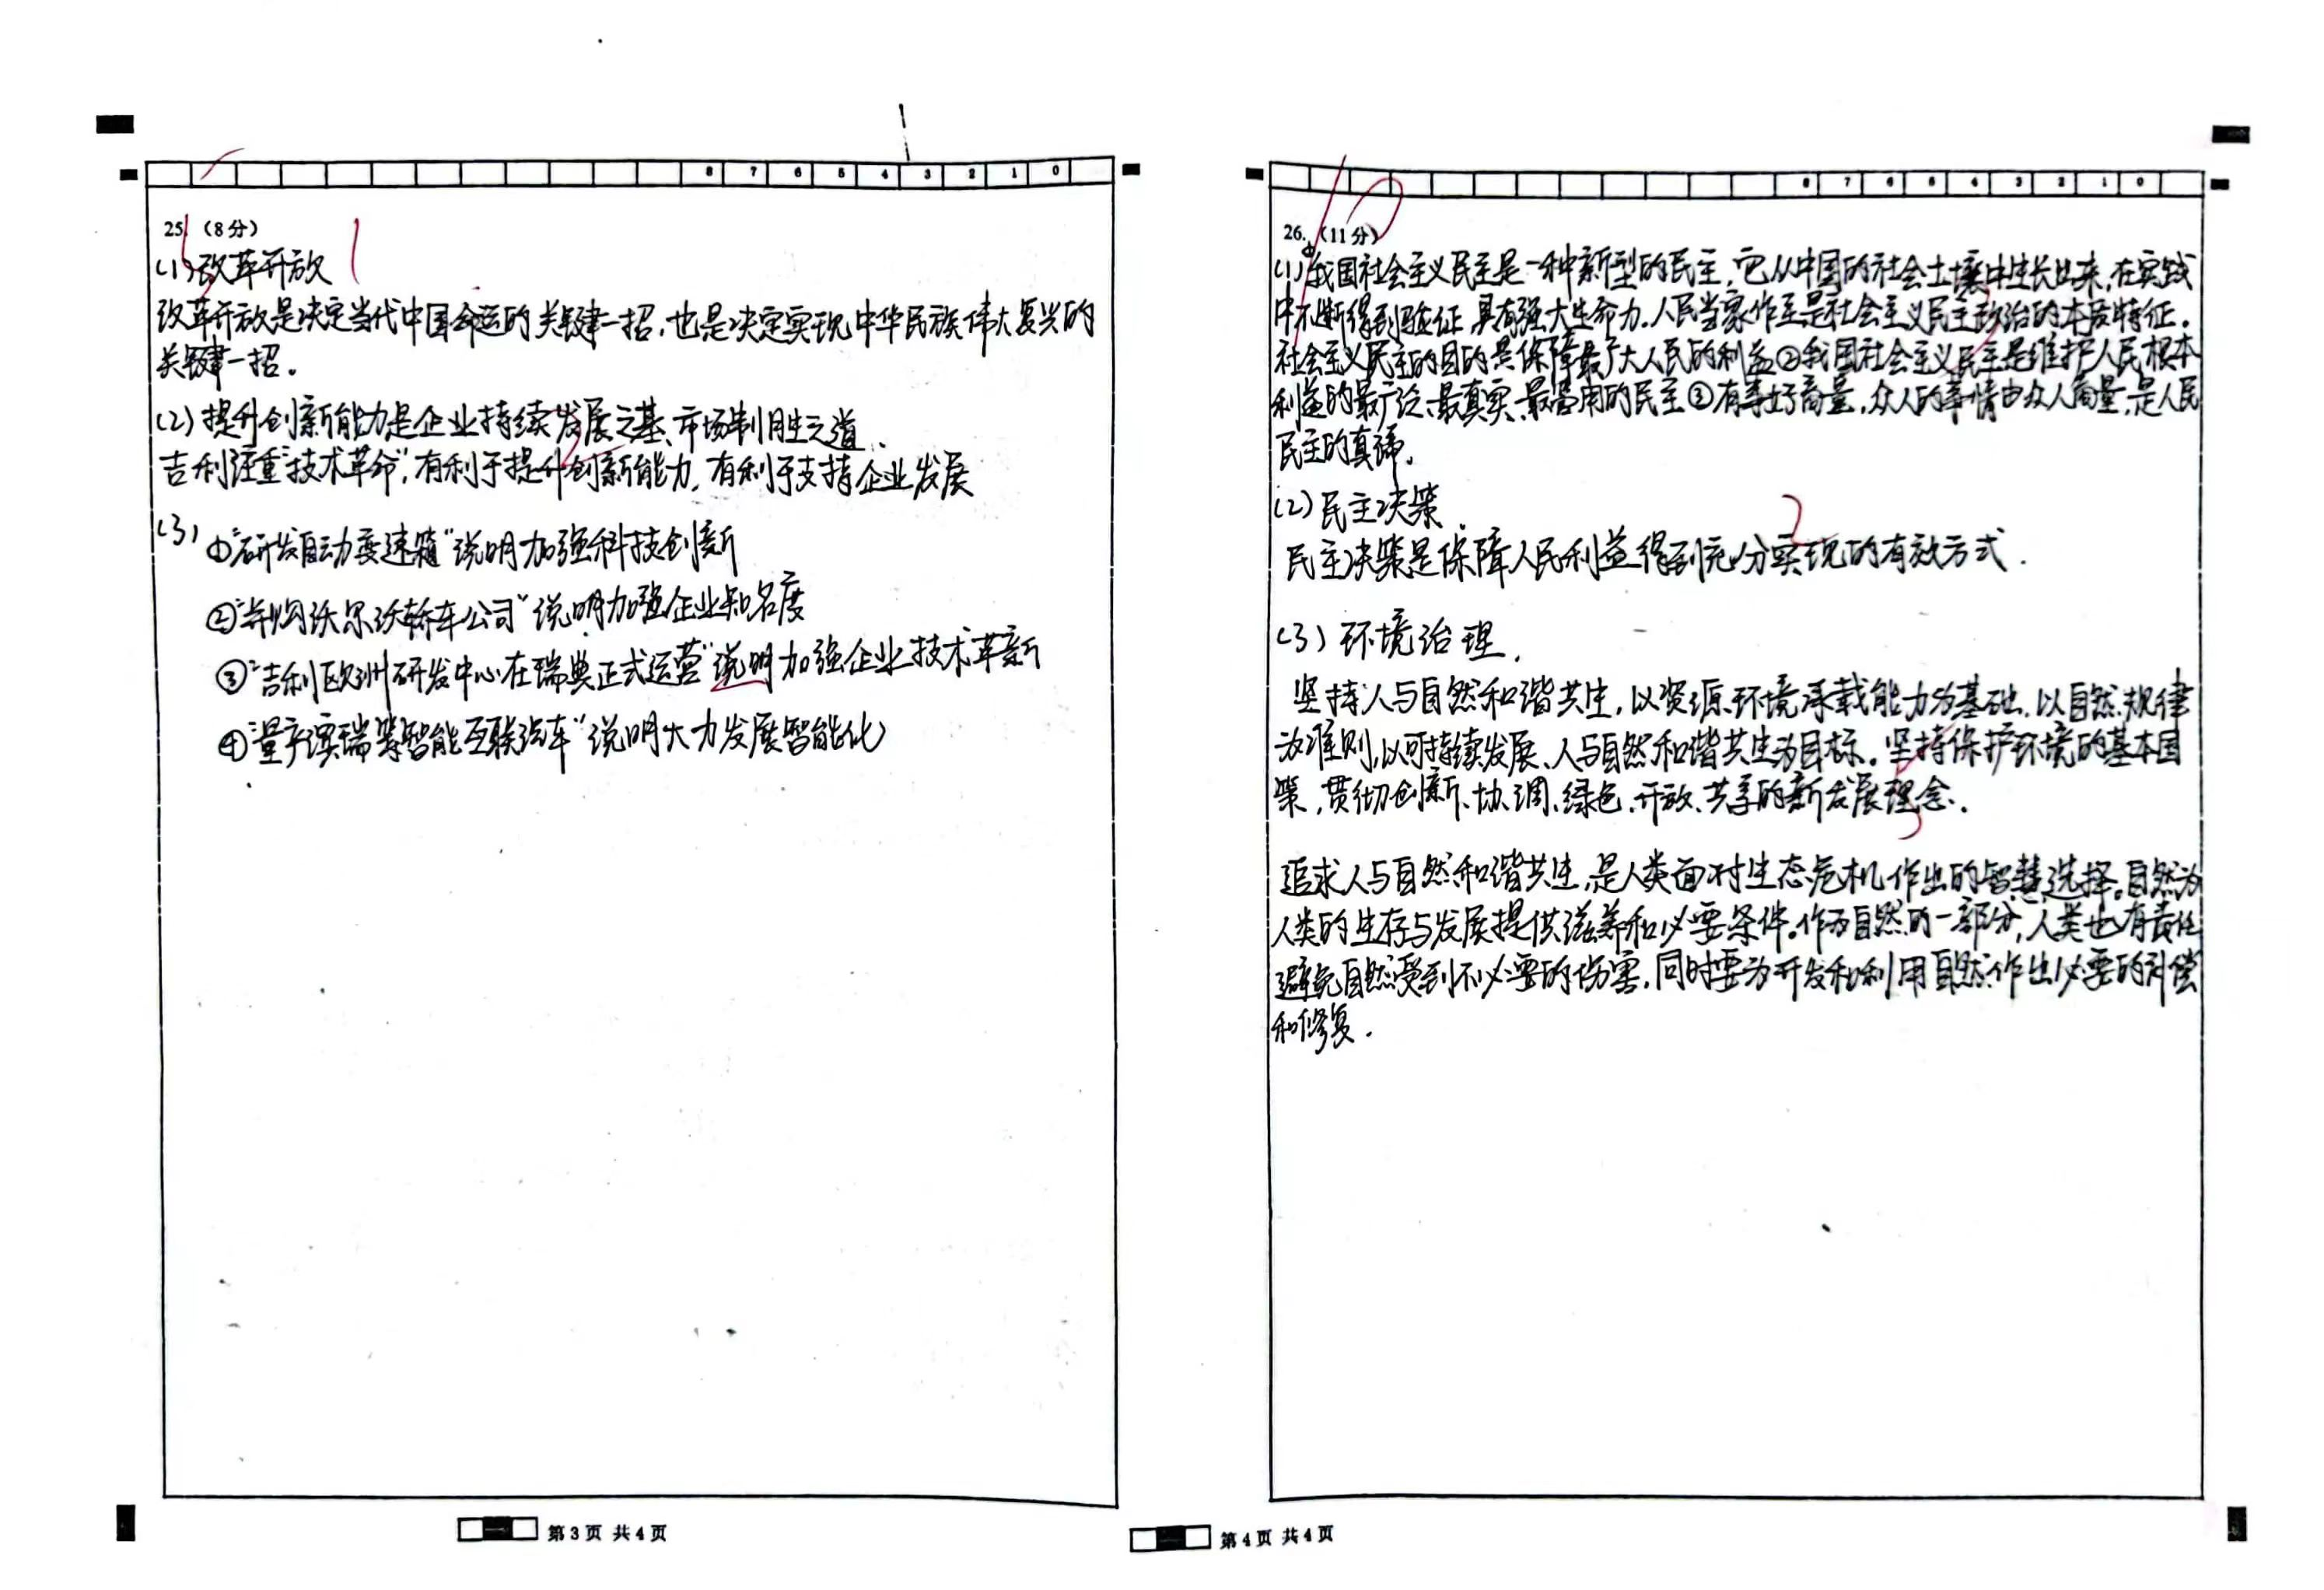 8 7 6 5 4 3 2 1 0
25. (8分)
(1)改革开放
改革开放是决定当代中国命运的关键一招,也是决定实现中华民族伟大复兴的
关键一招。
(2)提升创新能力是企业持续发展之基、市场制胜之道.
吉利注重"技术革命",有利于提升创新能力,有利于支持企业发展
(3)①"研发自动变速箱"说明加强科技创新
②"并购沃尔沃轿车公司"说明加强企业知名度
③"吉利欧洲研发中心在瑞典正式运营"说明加强企业技术革新
④"量产 等智能互联汽车"说明大力发展智能化
第3页 共4页
8 7 6 5 4 3 2 1 0
10
26. (11分)
(1)①我国社会主义民主是一种新型的民主,它从中国的社会土壤中生长出来,在实践
中不断得到验证,具有强大生命力.人民当家作主是社会主义民主政治的本质特征。
社会主义民主的目的是保障最广大人民的利益②我国社会主义民主是维护人民根本
利益的最广泛、最真实、最管用的民主③有事好商量,众人的事情由众人商量,是人民
民主的真谛。
(2)民主决策.
民主决策是保障人民利益得到充分实现的有效方式.
(3)环境治理.
坚持人与自然和谐共生,以资源环境承载能力为基础,以自然规律
为准则,以可持续发展、人与自然和谐共生为目标。坚持保护环境的基本国
策,贯彻创新、协调、绿色、开放、共享的新发展理念.
追求人与自然和谐共生,是人类面对生态危机作出的智慧选择。自然为
人类的生存与发展提供滋养和必要条件。作为自然的一部分,人类也有责任
避免自然受到不必要的伤害,同时要为开发和利用自然作出必要的补偿
和修复.
第4页 共4页